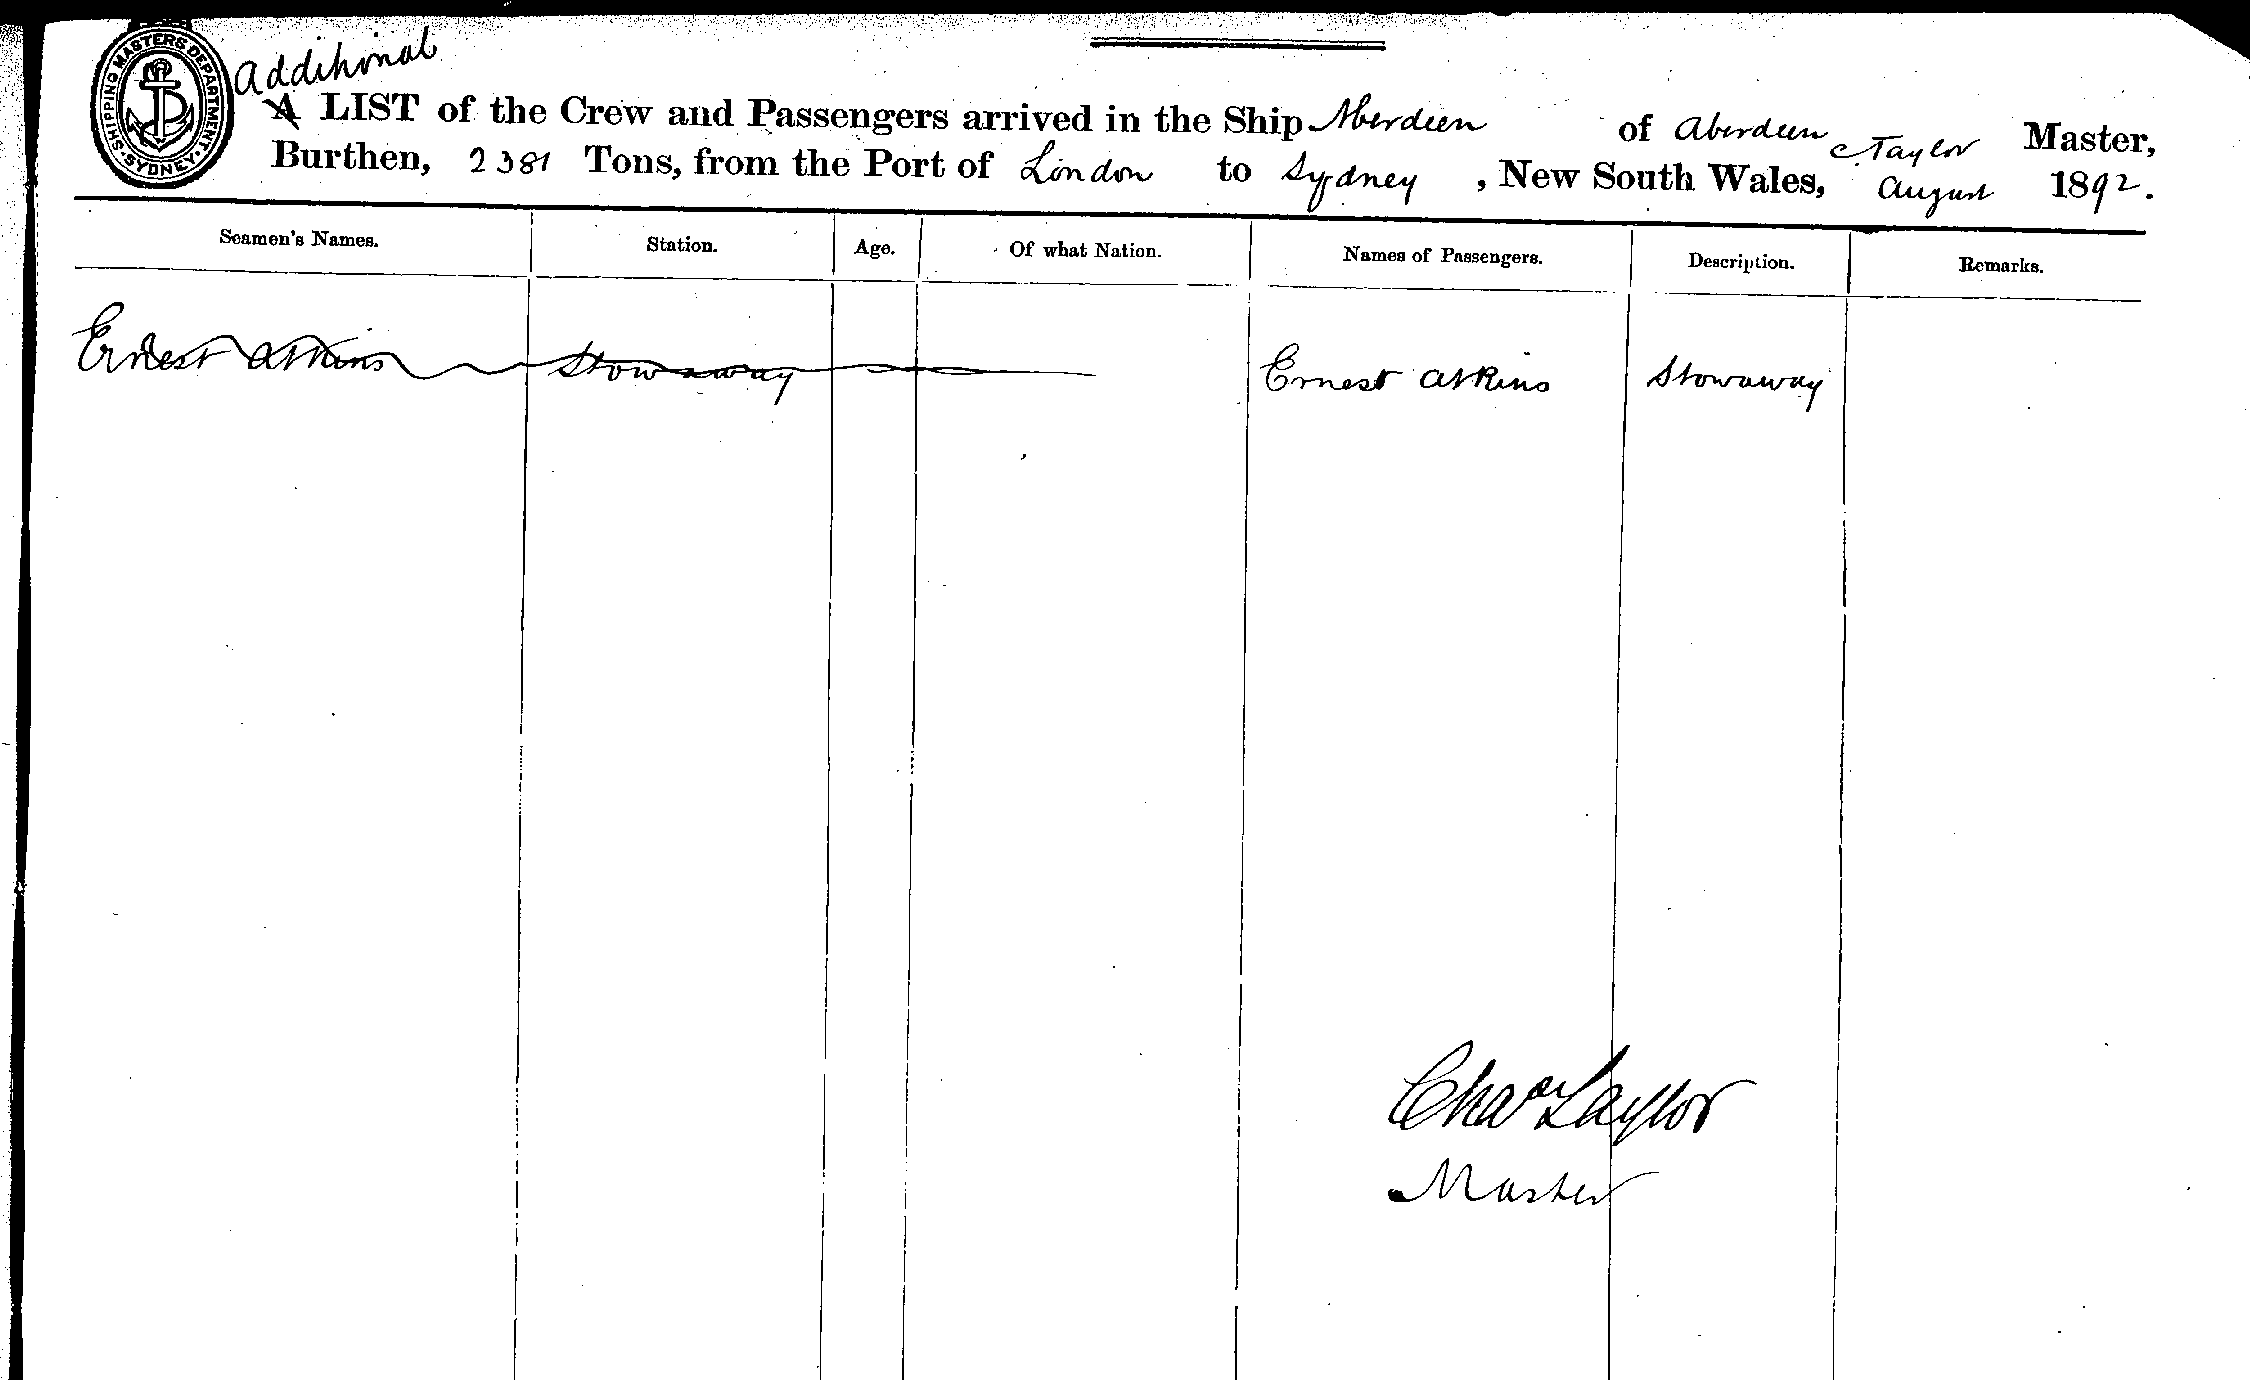 SHIPPING MASTERS DEPARTMENT · SYDNEY ·
Additional
A LIST of the Crew and Passengers arrived in the Ship Aberdeen of Aberdeen C Taylor Master,
Burthen, 2381 Tons, from the Port of London to Sydney , New South Wales, August 1892.
Seamen's Names. Station. Age. Of what Nation. Names of Passengers. Description. Remarks.
Ernest Atkins Stowaway Ernest Atkins Stowaway
Chas Taylor
Master